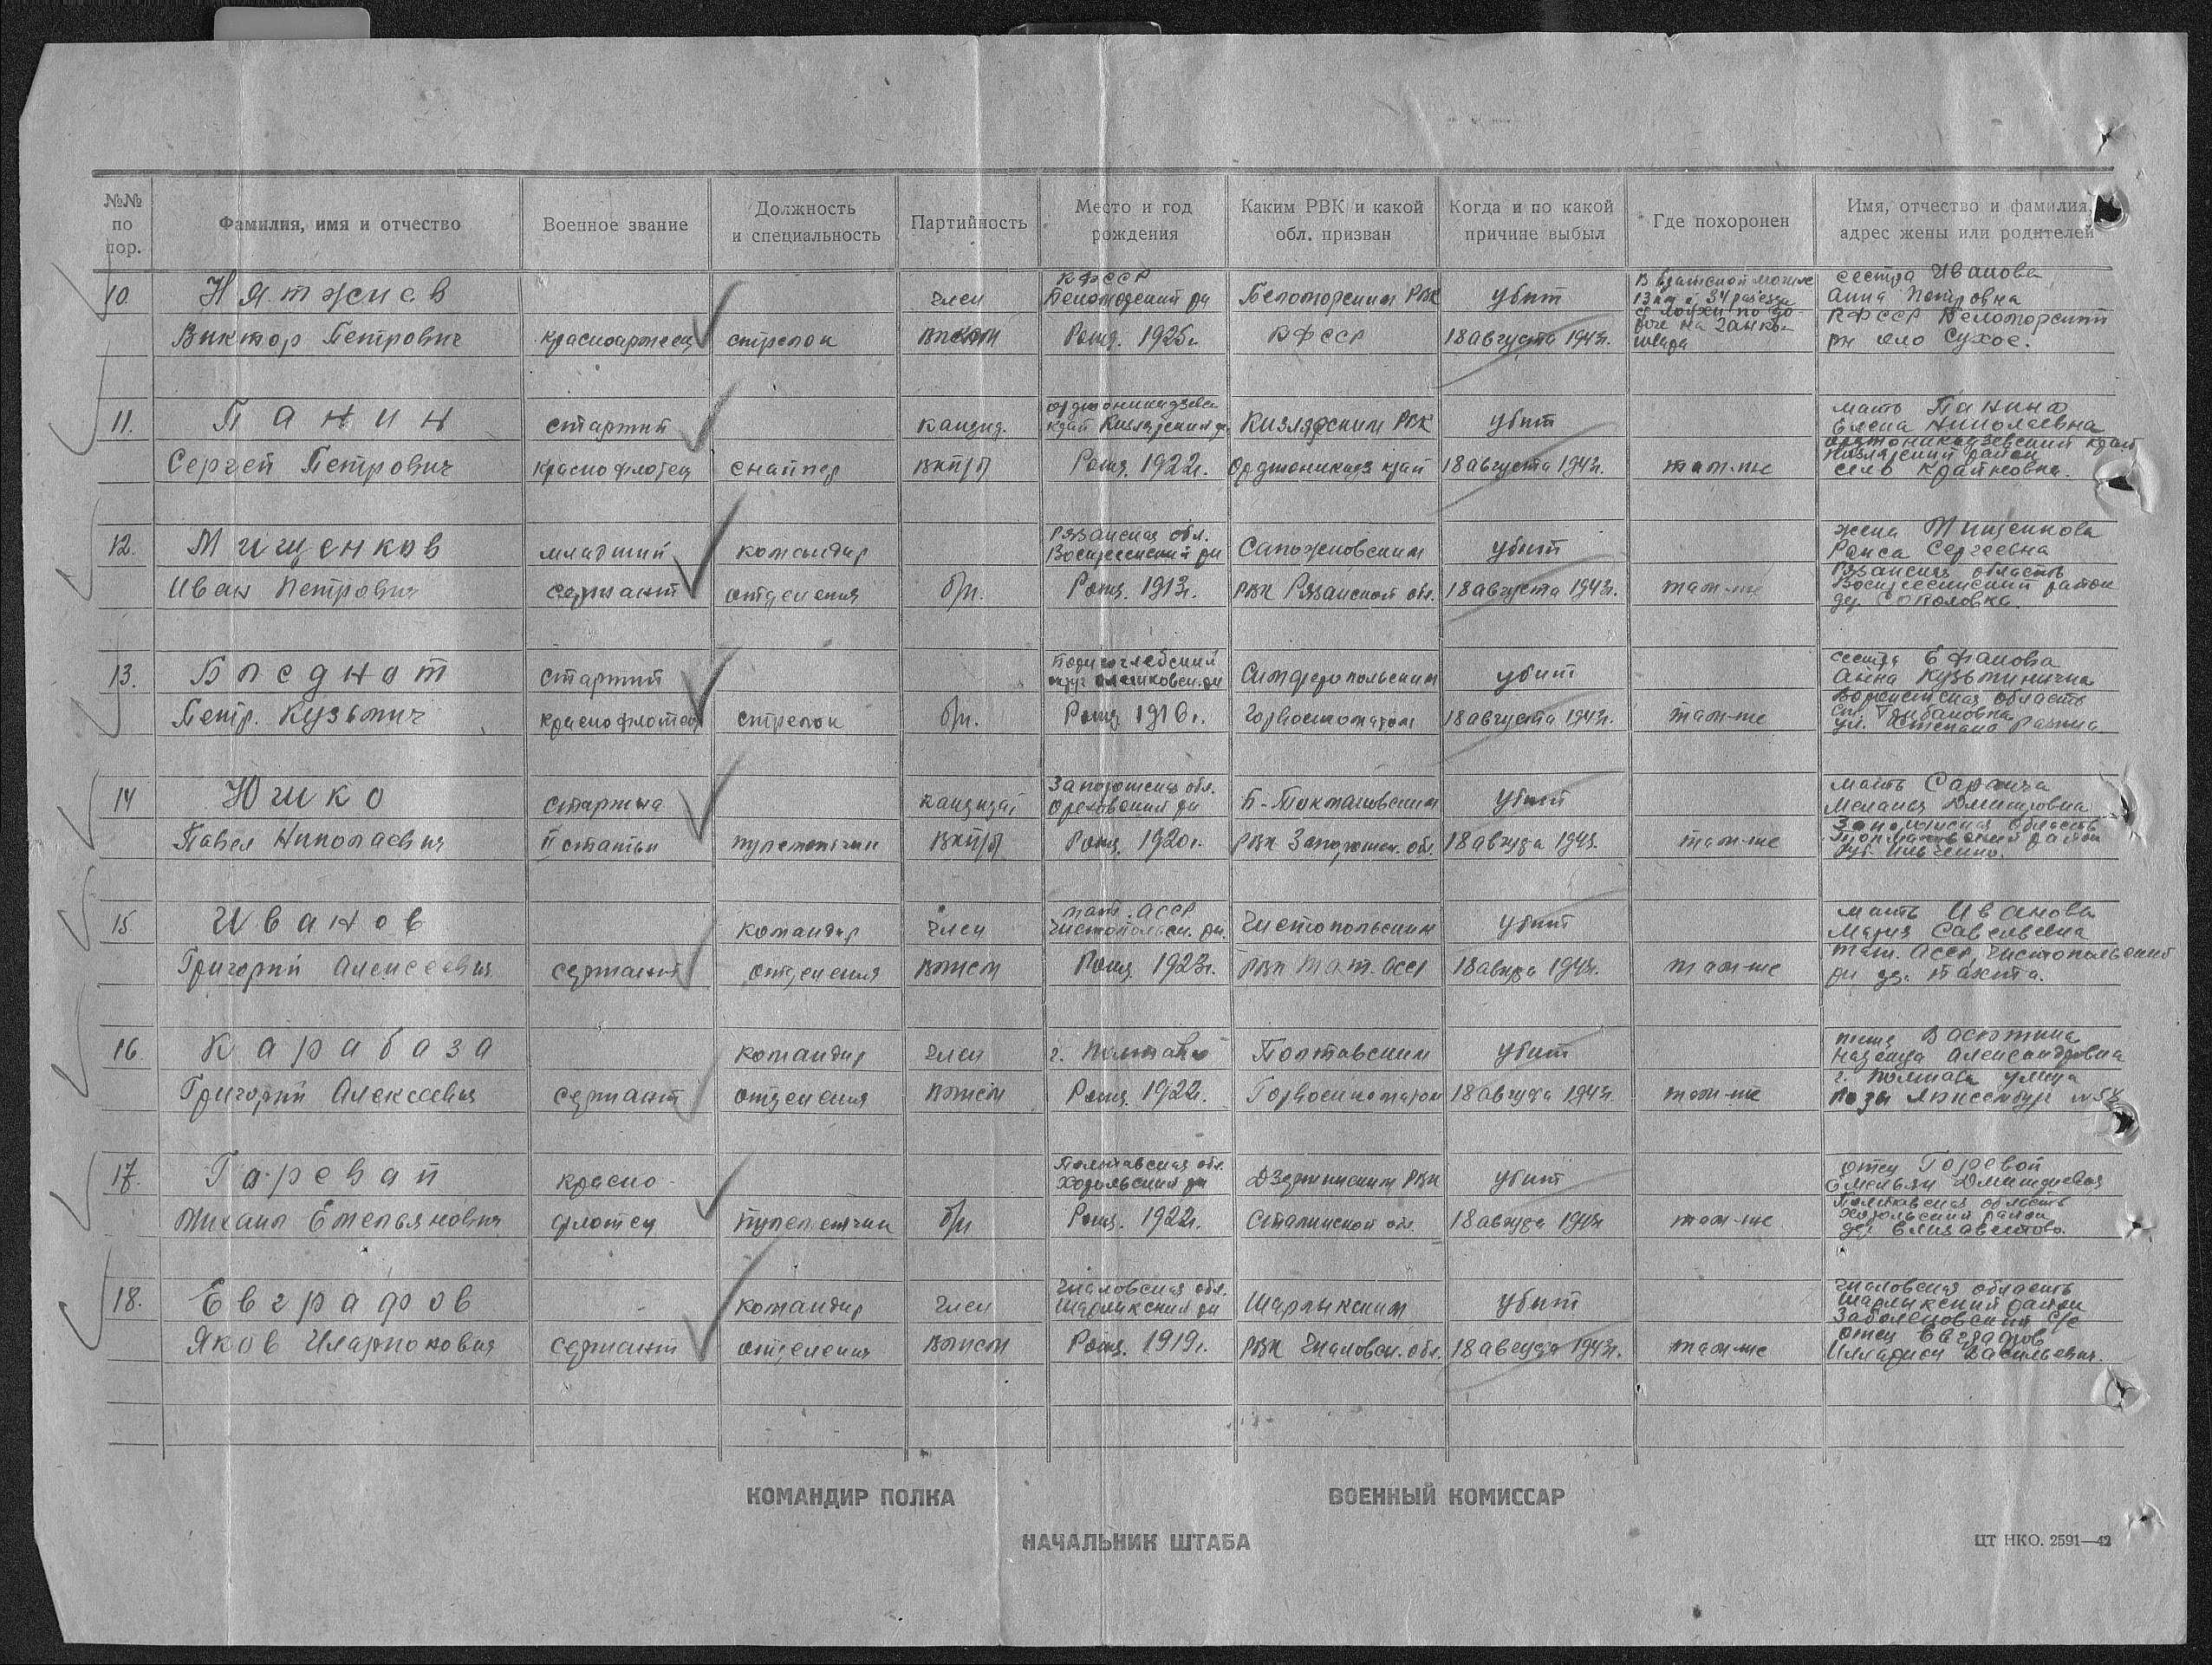 №№ по пор.
Фамилия, имя и отчество
Военное звание
Должность и специальность
Партийность
Место и год рождения
Каким РВК и какой обл. призван
Когда и по какой причине выбыл
Где похоронен
Имя, отчество и фамилия, адрес жены или родителей
10. Виктор Петрович
красноармеец
стрелок
член
КФССР Беломорский рн
Рожд. 1925г.
Беломорским РВК
КФССР
убит
18 августа 1943г.
В братской могиле
сестра Иванова
Анна Петровна
КФССР Беломорский
рн село Сухое.
11. Панин
Сергей Петрович
старший
краснофлотец
снайпер
кандид.
ВКП/б
край Кизлярский р
Рожд. 1922г.
Кизлярским РВК
Орджоникидз край
убит
18 августа 1943г.
там-же
мать Панина
Елена Николаевна
орджоникидзевский край
Кизлярский район
село Крайновка.
12. Мищенков
Иван Петрович
младший
сержант
командир
отделения
б/п.
Рязанская обл.
Рожд. 1913г.
Сапожковским
РВК Рязанской обл.
убит
18 августа 1943г.
там-же
жена Мищенкова
Раиса Сергеевна
Рязанская область
район
13.
Петр. Кузьмич
старший
краснофлотец
стрелок
б/п.
Рожд 1916г.
Симферопольским
Горвоенкоматом
убит
18 августа 1943г.
там-же
сестра Ефанова
Анна Кузьминична
Воронежская область
ул. Степана Разина
14 Юшко
Павел Николаевич
старшина
II статьи
пулеметчик
кандидат
ВКП/б
Запорожская обл.
Ореховский рн
Рожд. 1920г.
Б-Токмакским
РВК Запорожск. обл.
убит
18 августа 1943.
там-же
мать
Мелания Дмитровна
Запорожская область
район
15. Иванов
Григорий Алексеевич
сержант
командир
отделения
член
ВЛКСМ
тат. АССР
Чистопольск. рн.
Рожд 1923г.
Чистопольским
РВК Тат. АССР
убит
18 августа 1943г.
там-же
мать Иванова
Мария Савельевна
Тат. АССР, Чистопольский
рн
16. Карабаза
Григорий Алексеевич
сержант
командир
отделения
член
ВЛКСМ
г. Полтава
Рожд. 1922г.
Полтавским
Горвоенкоматом
убит
18 августа 1943г.
там-же
Надежда Александровна
г. Полтава улица
Розы Люксембург
17.
Михаил Емельянович
красно-
флотец
пулеметчик
б/п
Полтавская обл.
Рожд. 1922г.
Дзержинским РВК
Сталинской обл.
убит
18 августа 1943г
там-же
отец Горевой
Емельян Дмитриевич
Полтавская область
район
дер. Елизаветово.
18. Евграфов
Яков Иларионович
сержант
командир
отделения
член
ВЛКСМ
Чкаловская обл.
Шарлыкский рн
Рожд. 1919г.
Шарлыкским
РВК Чкаловск. обл.
убит
18 августа 1943г.
там-же
Чкаловская область
Шарлыкский район
отец Евграфов
Илларион Васильевич.
КОМАНДИР ПОЛКА
ВОЕННЫЙ КОМИССАР
НАЧАЛЬНИК ШТАБА
ЦТ НКО. 2591—42